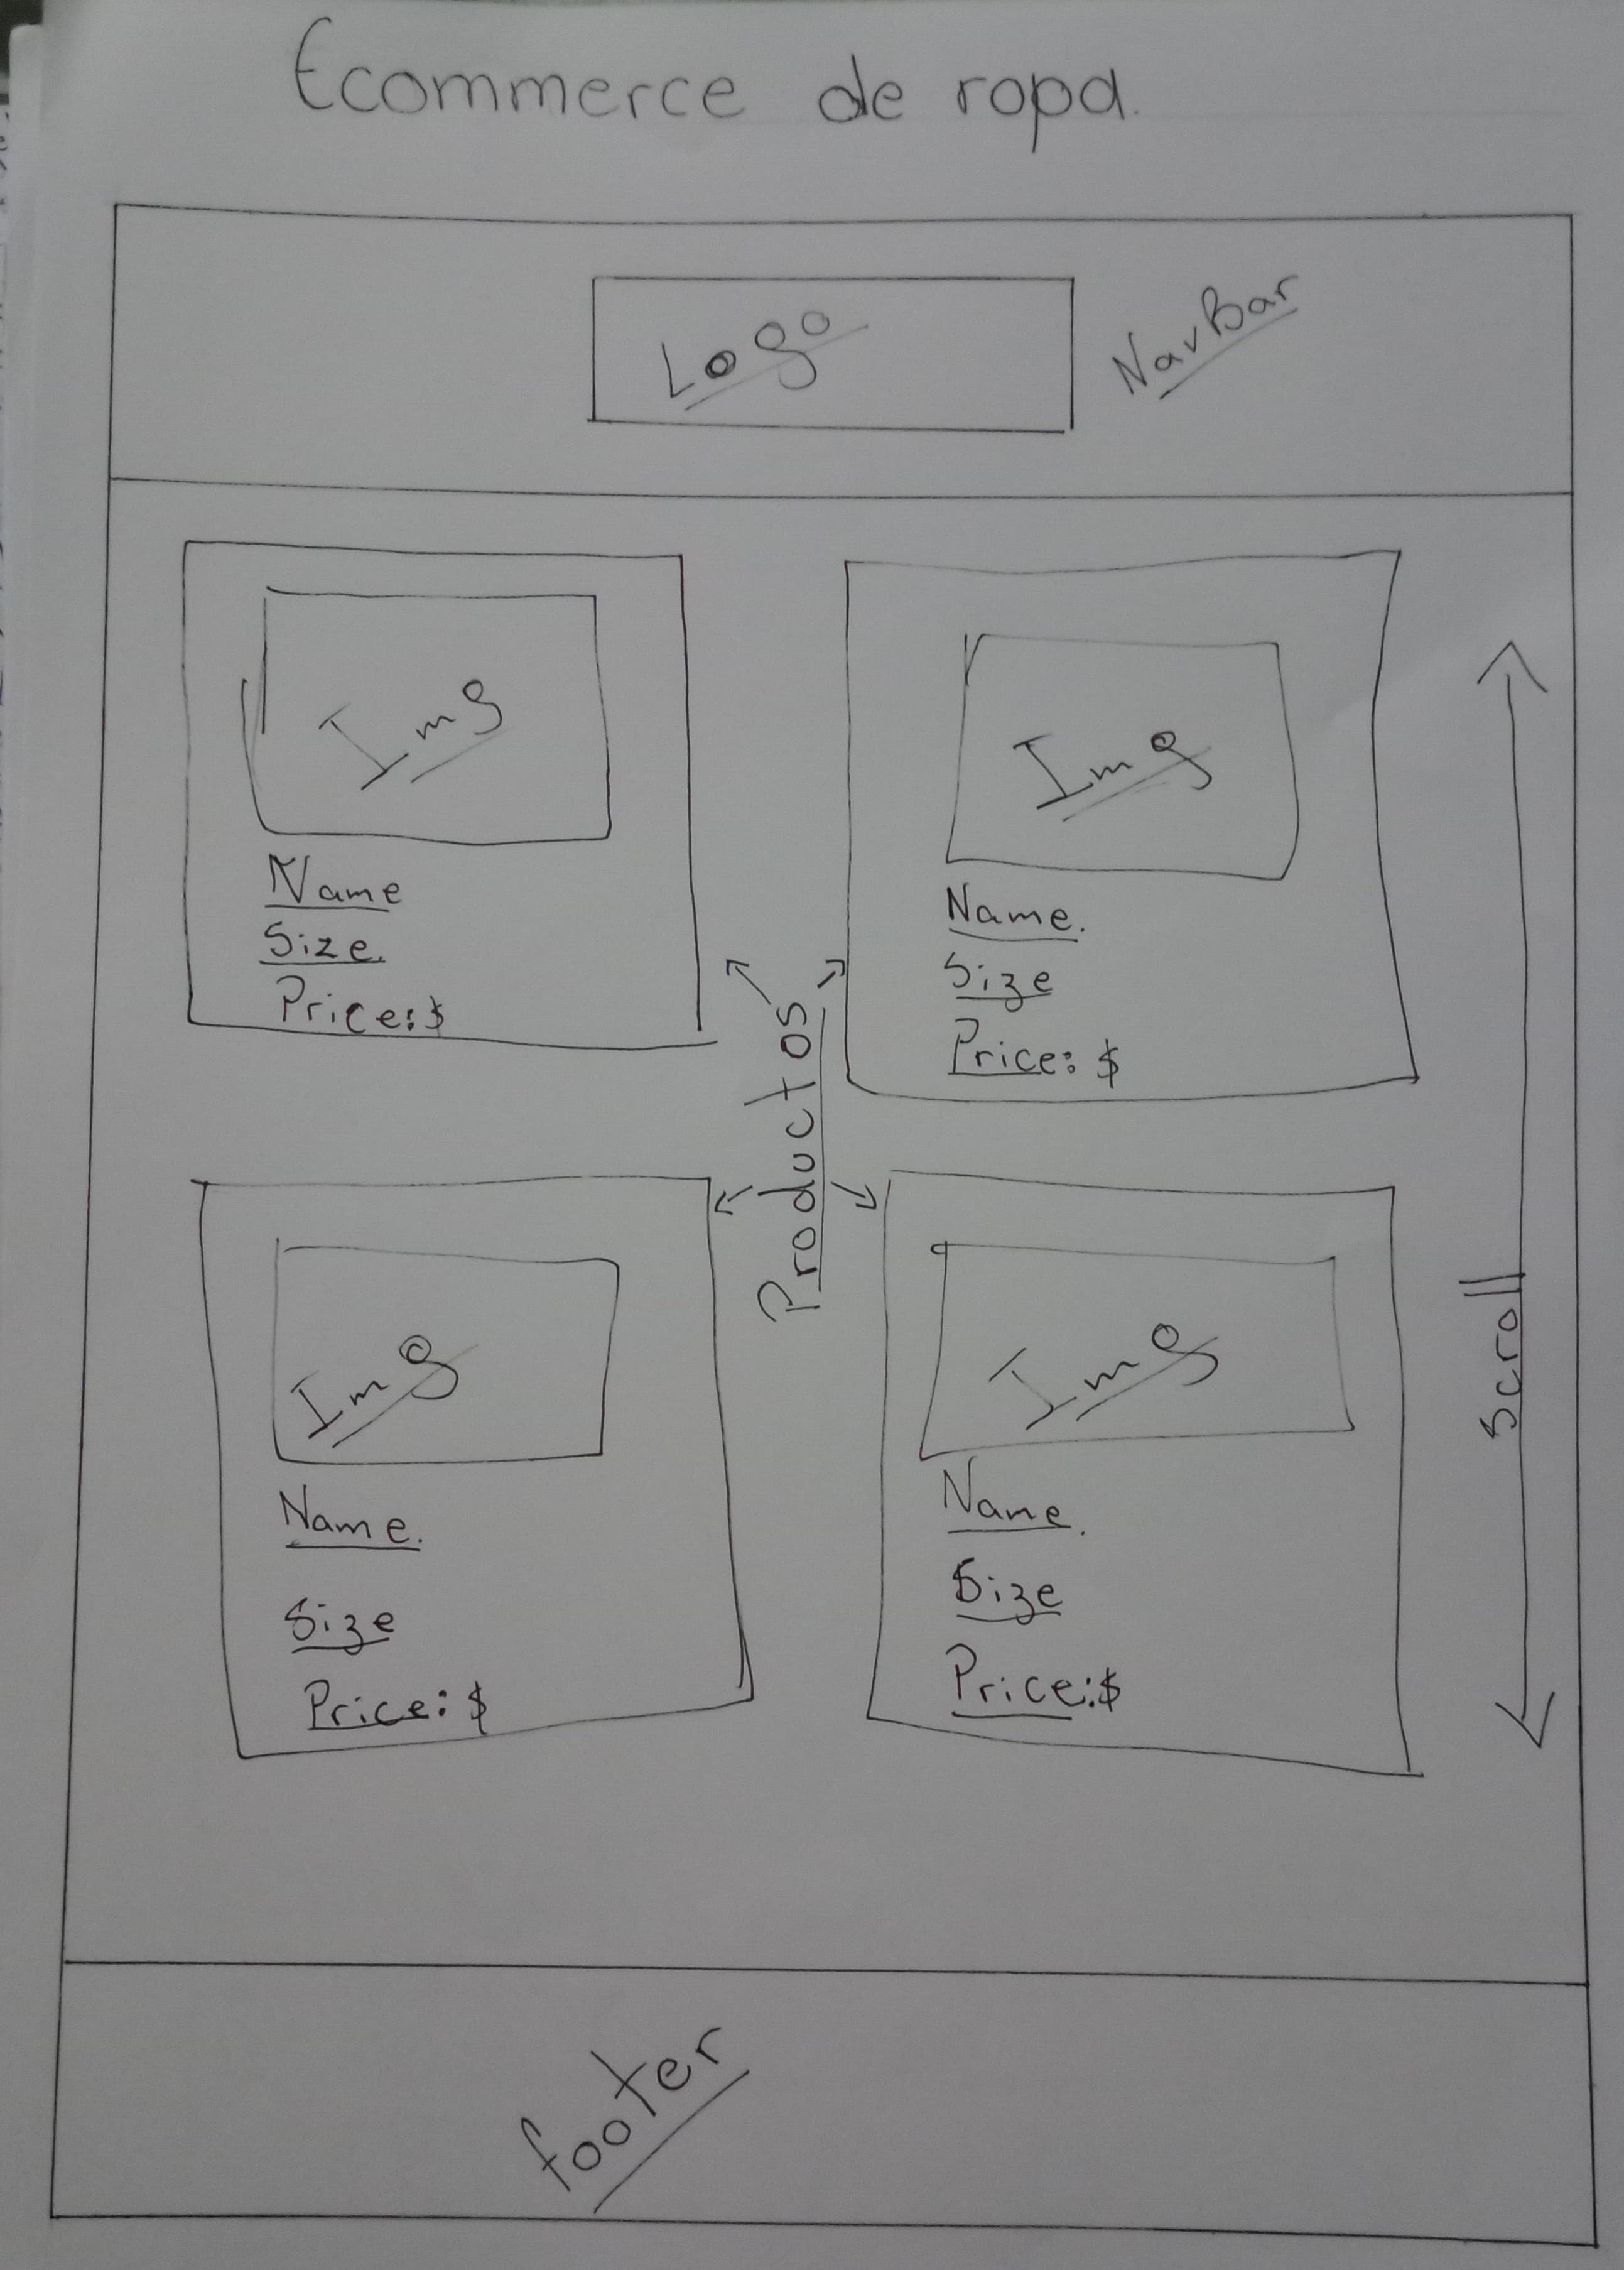 Ecommerce de ropa.
Logo
NavBar
Img
Name
Size.
Price:$
Img
Name.
Size
Price: $
Productos
Img
Name.
Size
Price: $
Img
Name.
Size
Price:$
Scroll
footer